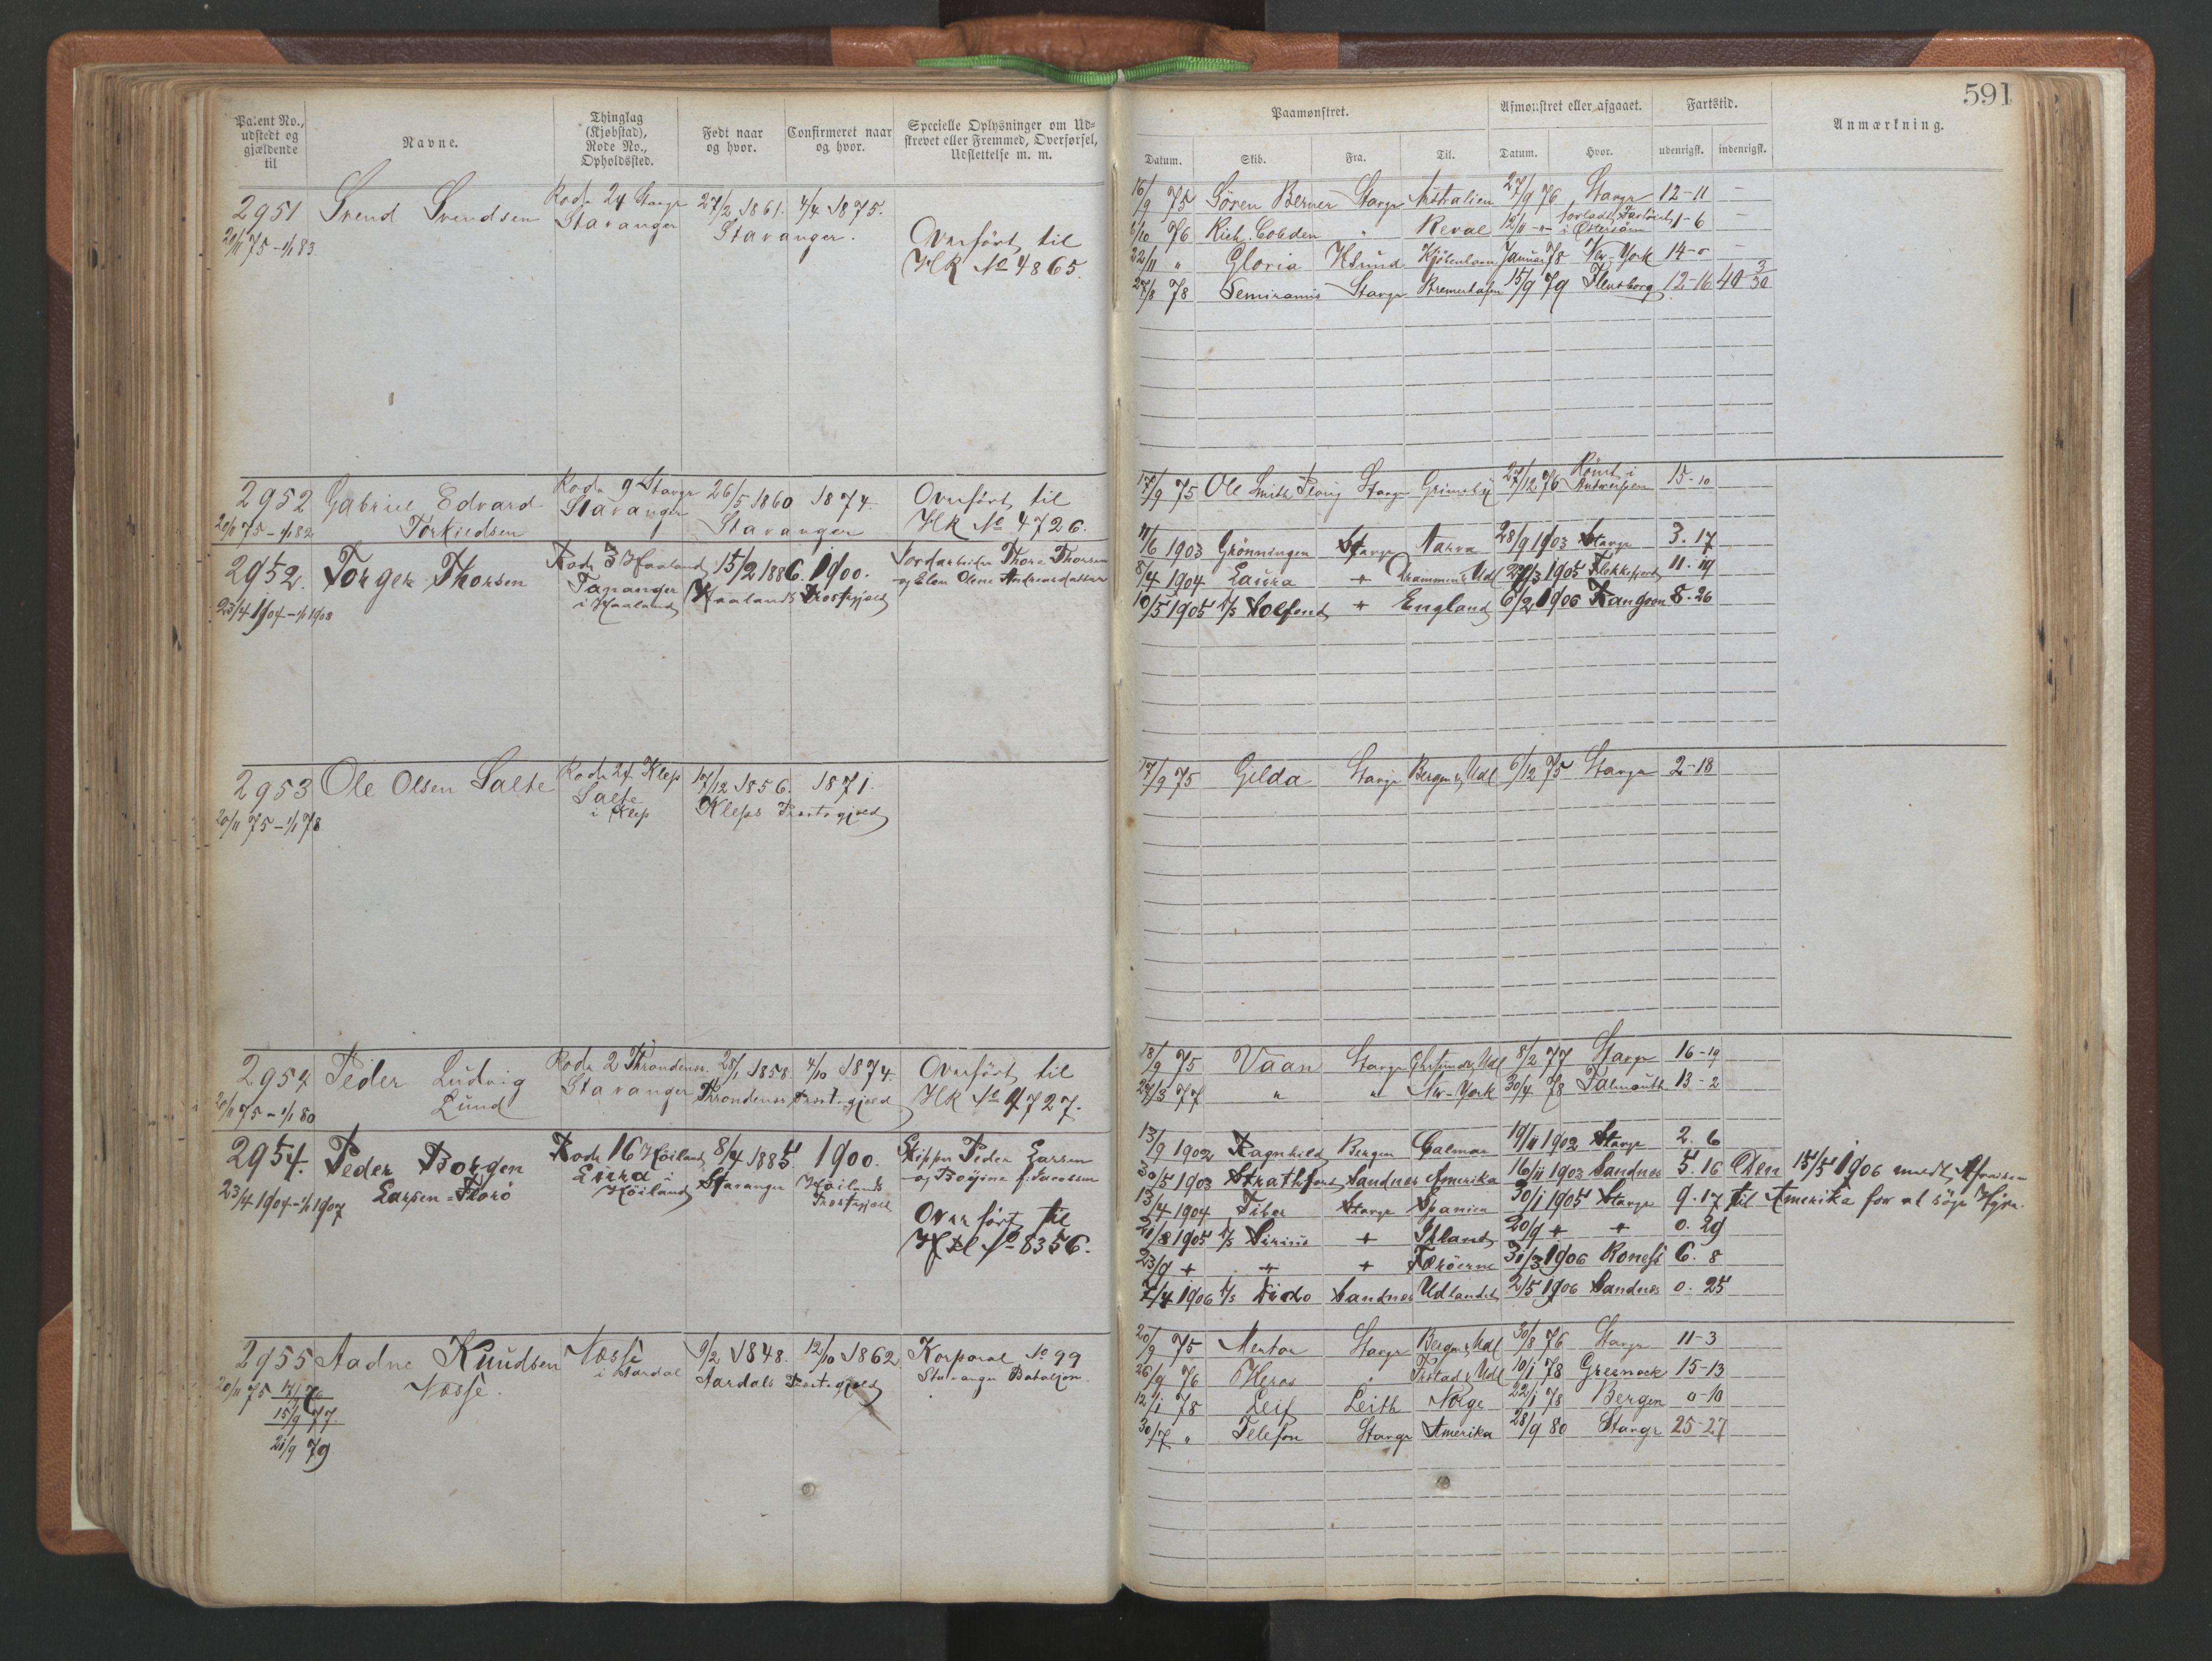 591
Patent No., udstedt og gjældende til
Navne.
Thinglag (Kjøbstad), Rode No., Opholdssted.
Født naar og hvor.
Confirmeret naar og hvor.
Specielle Oplysninger om Udskrevet eller Fremmed, Overførsel, Udslettelse m. m.
Paamønstret.
Afmønstret eller afgaaet.
Fartstid.
Anmærkning.
Datum. Skib. Fra. Til. Datum. Hvor. udenrigsk. indenrigsk.
2951 Svend Svendsen Rode 24 Stavgr 27/2 1861. 4/4 1875.
20/11 75 - 1/1 83 Stavanger Stavanger.
Overført til
HR No 4865.
16/9 75 Sören Berner Stavgr Australien 27/9 76 Stavgr 12-11 —
6/10 76 Rich. Cobden " Reval 12/11 -"- forladt Fartöiet i Østersöen 1-6 —
22/11 " Gloria Ksund Kjöbenhavn Januar 78 New-York 14-0 —
27/8 78 Semiramis Stavgr Bremerhafen 15/9 79 Flensborg 12-16 40 3/30
2952 Gabriel Edvard Rode 9 Stavgr 26/5 1860 1874. Overført til
20/11 75 - 1/1 82 Torkildsen Stavanger Stavanger HR No 4726.
17/9 75 Ole Smith Ploug Stavgr Grimsby 27/12 76 Römt i Antwerpen 15-10
2952. Torger Thorsen Rode 3 Haaland 15/2 1886. 1900. Jordarbeider Thore Thorsen
23/4 1904 - 1/1 1908 Tananger i Haaland Haalands Prestegjeld og Elen Olene Andreasdatter
11/6 1903 Grönningen Stavgr Narva 28/9 1903 Stavgr 3. 17
8/4 1904 Laura + Drammen & Udl 27/3 1905 Flekkefjord 11. 19
10/5 1905 D/S Solfond + England 6/2 1906 Rangoon 8. 26
2953 Ole Olsen Salte Rode 24 Klep 17/12 1856. 1871.
20/11 75 - 1/1 78 Salte i Klep Kleps Prestegjeld
17/9 75 Gilda Stavgr Bergen & Udl 6/12 75 Stavgr 2-18
2954 Peder Ludvig Rode 2 Throndenes. 28/1 1858. 4/10 1874. Overført til
20/11 75 - 1/1 80 Lund Stavanger Throndenes Prestegjeld HR No 4727.
18/9 75 Vaan Stavgr Chrsund & Udl 8/2 77 Stavgr 16-19
27/3 77 " " New-York 30/4 78 Falmouth 13-2
2954. Peder Borgen Rode 16 Höiland 8/4 1885 1900. Skipper Peder Larsen
23/4 1904 - 1/1 1907 Larsen-Florö Lura i Höiland Stavanger Höilands Prestegjeld og Bogine f. Jacobsen
Overført til
HR No 8356.
13/9 1902 Ragnhild Bergen Calmar 19/11 1902 Stavgr 2. 6
30/5 1903 Strathfort Sandnes Amerika 16/11 1903 Sandnes 5. 16 Den 15/5 1906 meldt Afreisen
13/4 1904 Tiber Stavgr Spanien 30/1 1905 Stavgr 9. 17 til Amerika for at söge Hyre.
21/8 1905 D/S Sirius + Island 20/9 + + 0. 29
23/9 + + + Færöerne 31/3 1906 Ronefs 6. 8
7/4 1906 D/S Dido Sandnes Udlandet 2/5 1906 Sandnes 0. 25
2955 Aadne Knudsen Næsse 9/2 1848. 12/10 1862 Korporal No 99
20/11 75 Næsse. i Aardal Aardals Prestegjeld Stavanger Bataljon.
15/9 77
21/9 79
20/9 75 Mentor Stavgr Bergen & Udl 30/8 76 Stavgr 11-3
26/9 76 Heros " Frstad & Udl 10/1 78 Greenock 15-13
12/1 78 Leif Leith Norge 22/1 78 Bergen 0-10
30/7 " Telefon Stavgr Amerika 28/9 80 Stavgr 25-27